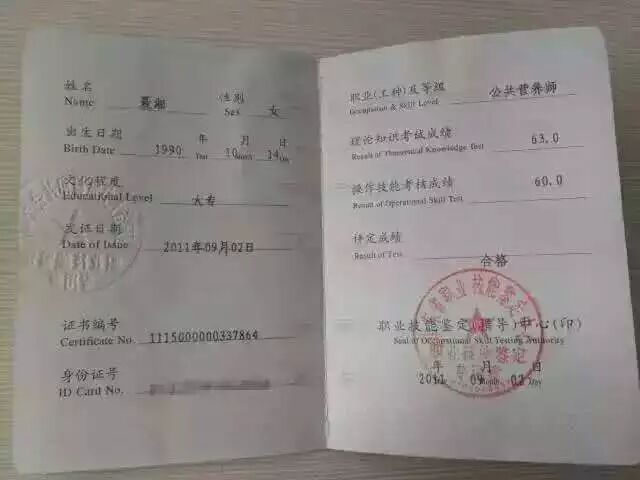 姓名 聂湘 性别 女
Name Sex
出生日期 年 月 日
Birth Date 1990 Year 10 Month 14 Day
文化程度
Educational Level 大专
发证日期
Date of Issue 2011年09月02日
证书编号
Certificate No. 1115000000337864
身份证号
ID Card No.
职业(工种)及等级 公共营养师
Occupation & Skill Level
理论知识考试成绩 63.0
Result of Theoretical Knowledge Test
操作技能考核成绩 60.0
Result of Operational Skill Test
评定成绩
Result of Test 合格
职业技能鉴定(指导)中心(印)
Seal of Occupational Skill Testing Authority
年 月 日
2011 09 Month 02 Day
省职业技能鉴定